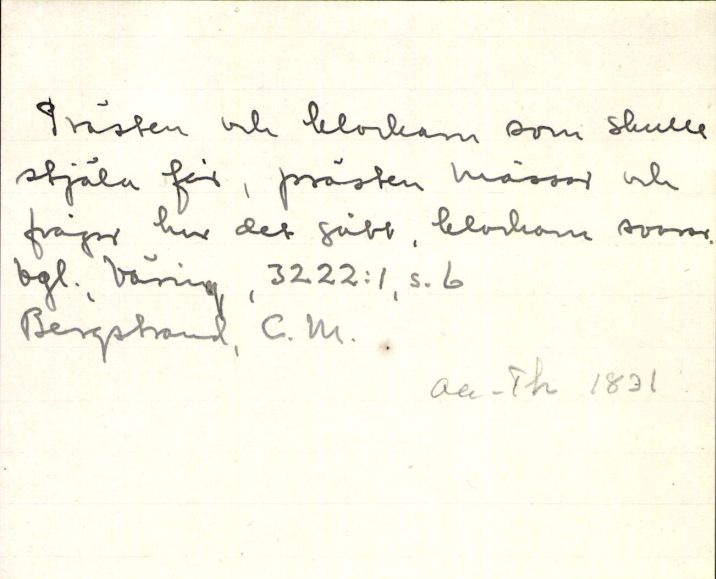 Prästen och klockarn som skulle
stjäla får, prästen mässar och
frågar hur det gått, klockarn svarar.
Vgl., Väring, 3222:1, s. 6
Bergstrand, C. M.
Aa-Th 1831